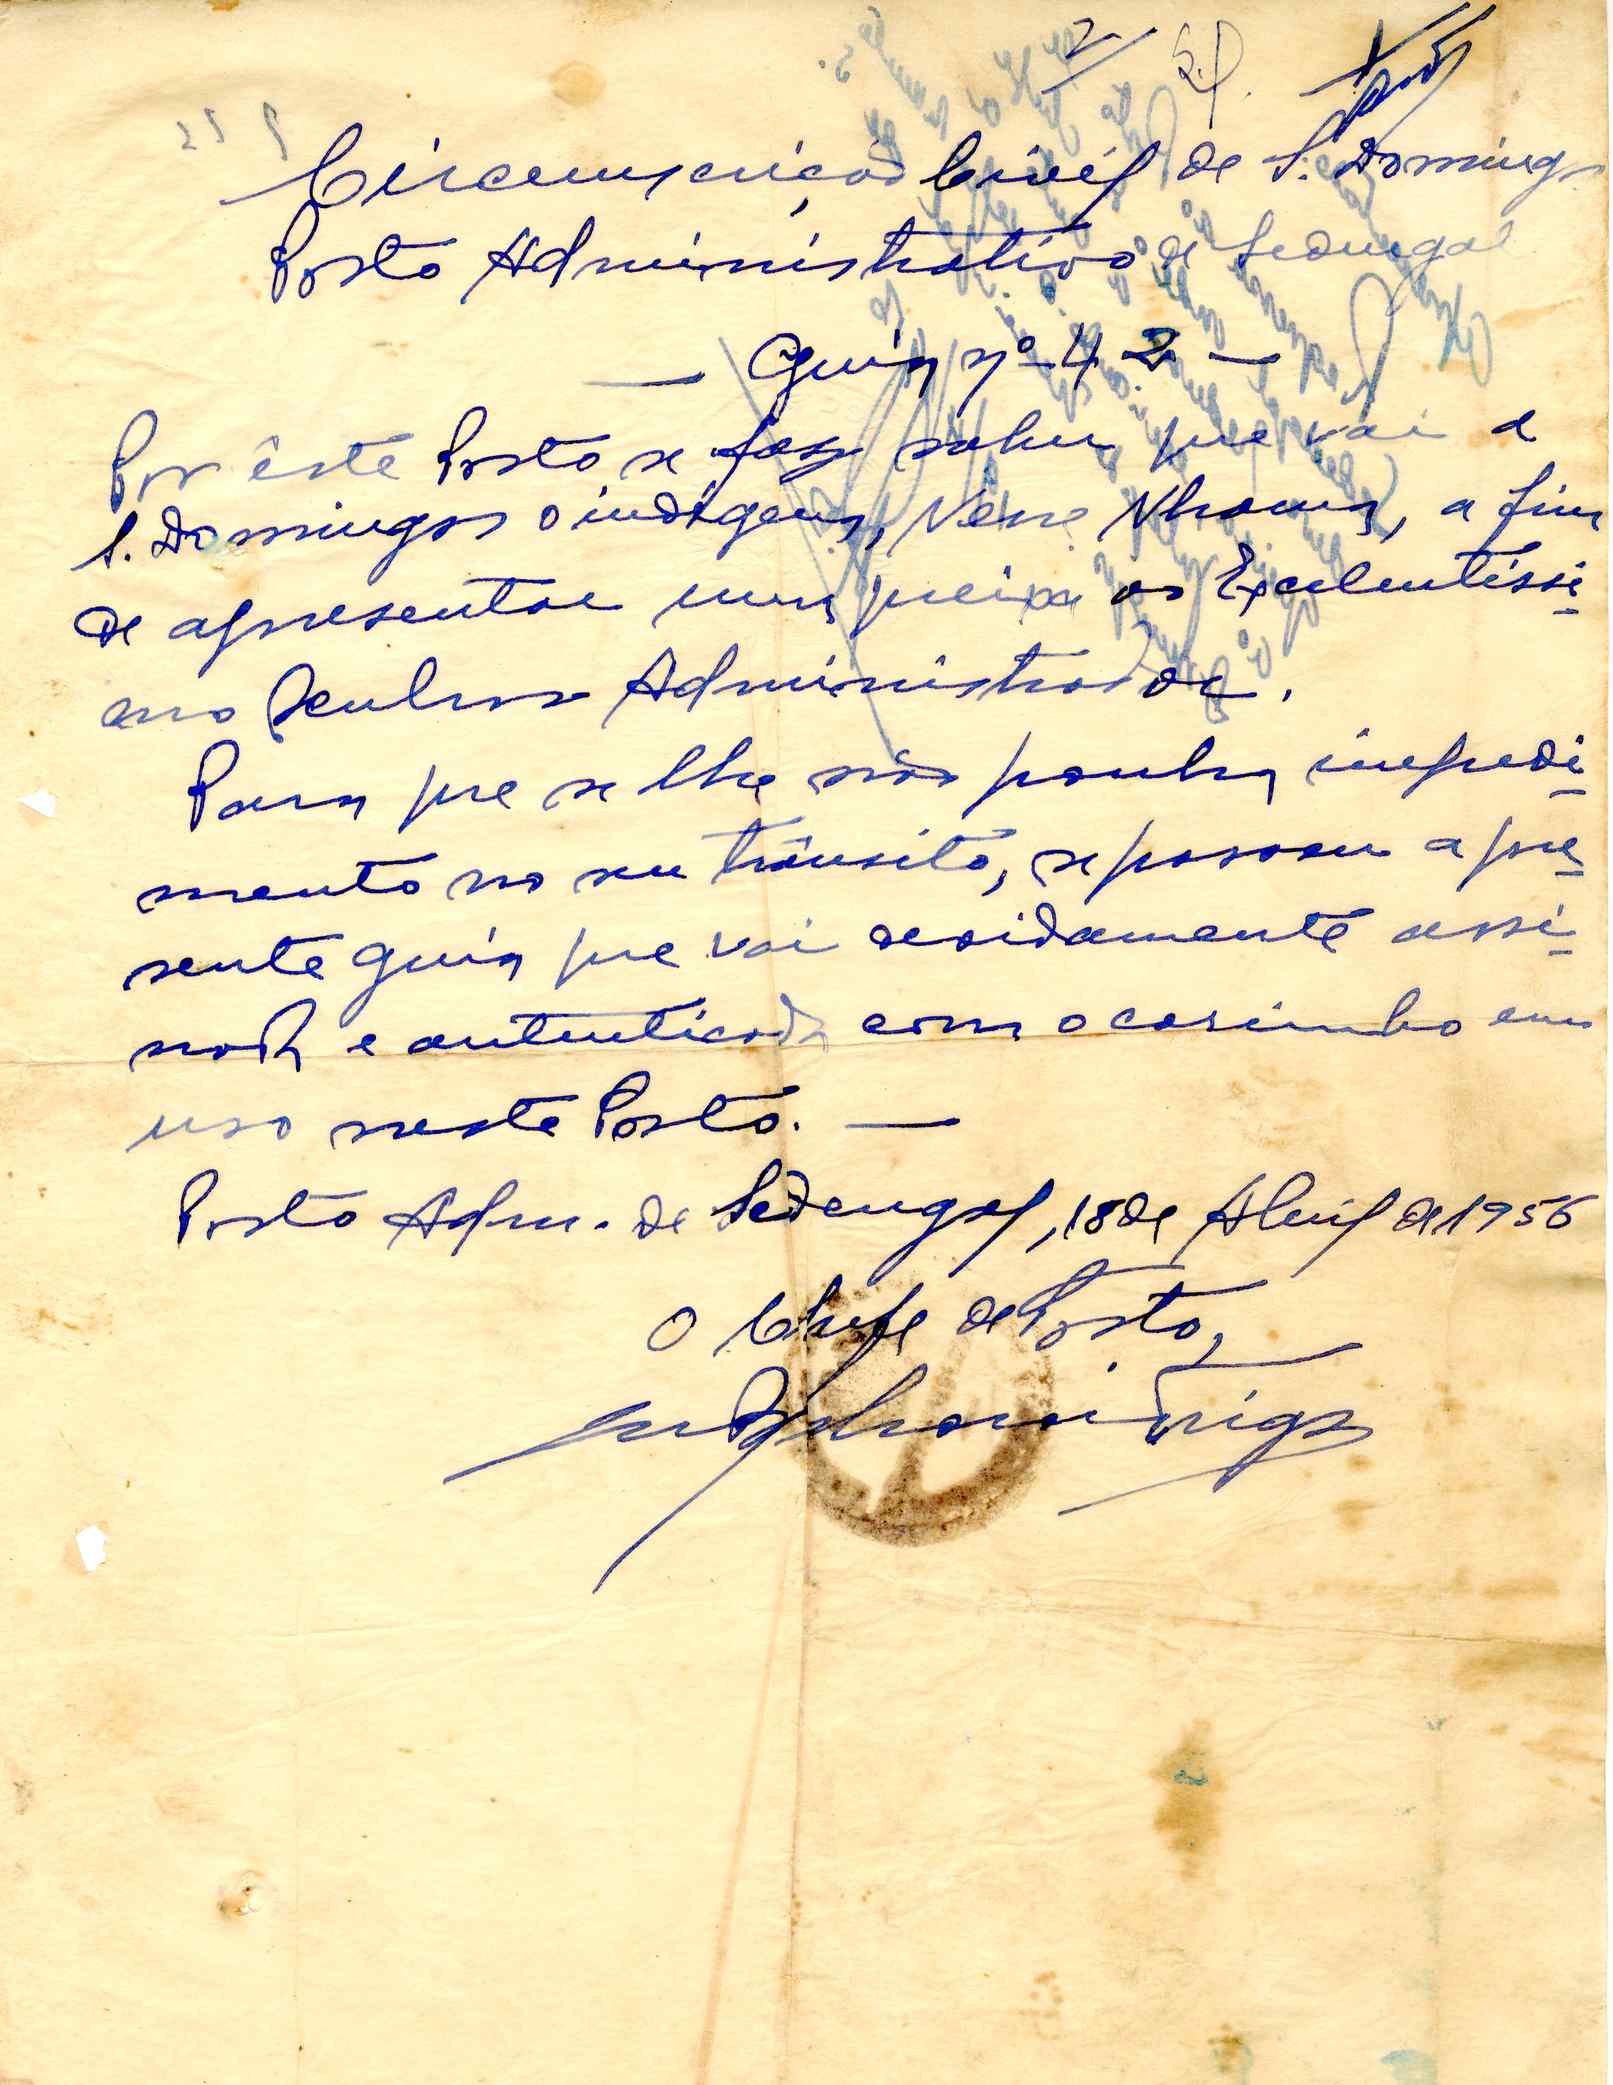 Circunscrição Civil de S. Domingos
Posto Administrativo de Sedengal
— Guia nº 42 —
Por êste Posto se faz saber que vai a
S. Domingos o indigena, Nhana, a fim
de apresentar uma queixa ao Excelentissi-
mo Senhor Administrador.
Para que se lhe não ponha impedi-
mento no seu trânsito, se passou a pre-
sente guia que vai devidamente assi-
nada e autenticada com o carimbo em
uso neste Posto. —
Posto Adm. de Sedengal, 18 de Abril de 1956
O Chefe de Posto,